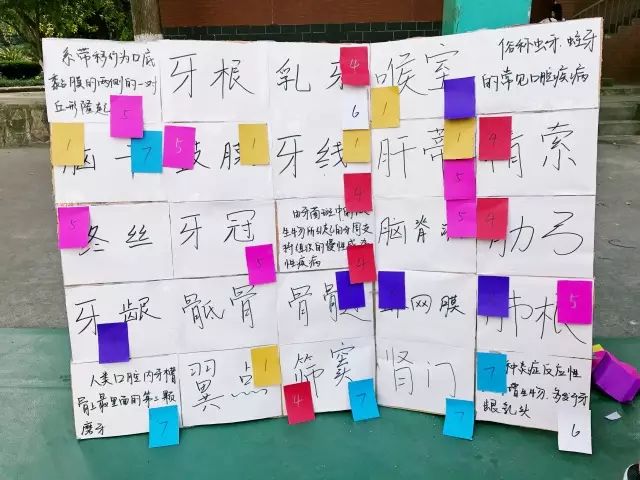 系带移行为口底
黏膜的两侧的一对
丘形隆起
5
牙根
乳牙
4
6
喉室
1
俗称虫牙、蛀牙
的常见口腔疾病
1
脑干
7
5
鼓膜
1
牙线
4
肝蒂
1
5
4
精索
5
终丝
牙冠
5
由牙菌斑中的
性疾病
4
脑脊
5
4
肋弓
牙龈
骶骨
骨髓
视网膜
肺根
5
人类口腔内牙槽
骨上最里面的第三颗
磨牙
7
翼点
1
筛窦
4
7
肾门
7
7
种炎症反应性
增生物
龈乳头
6